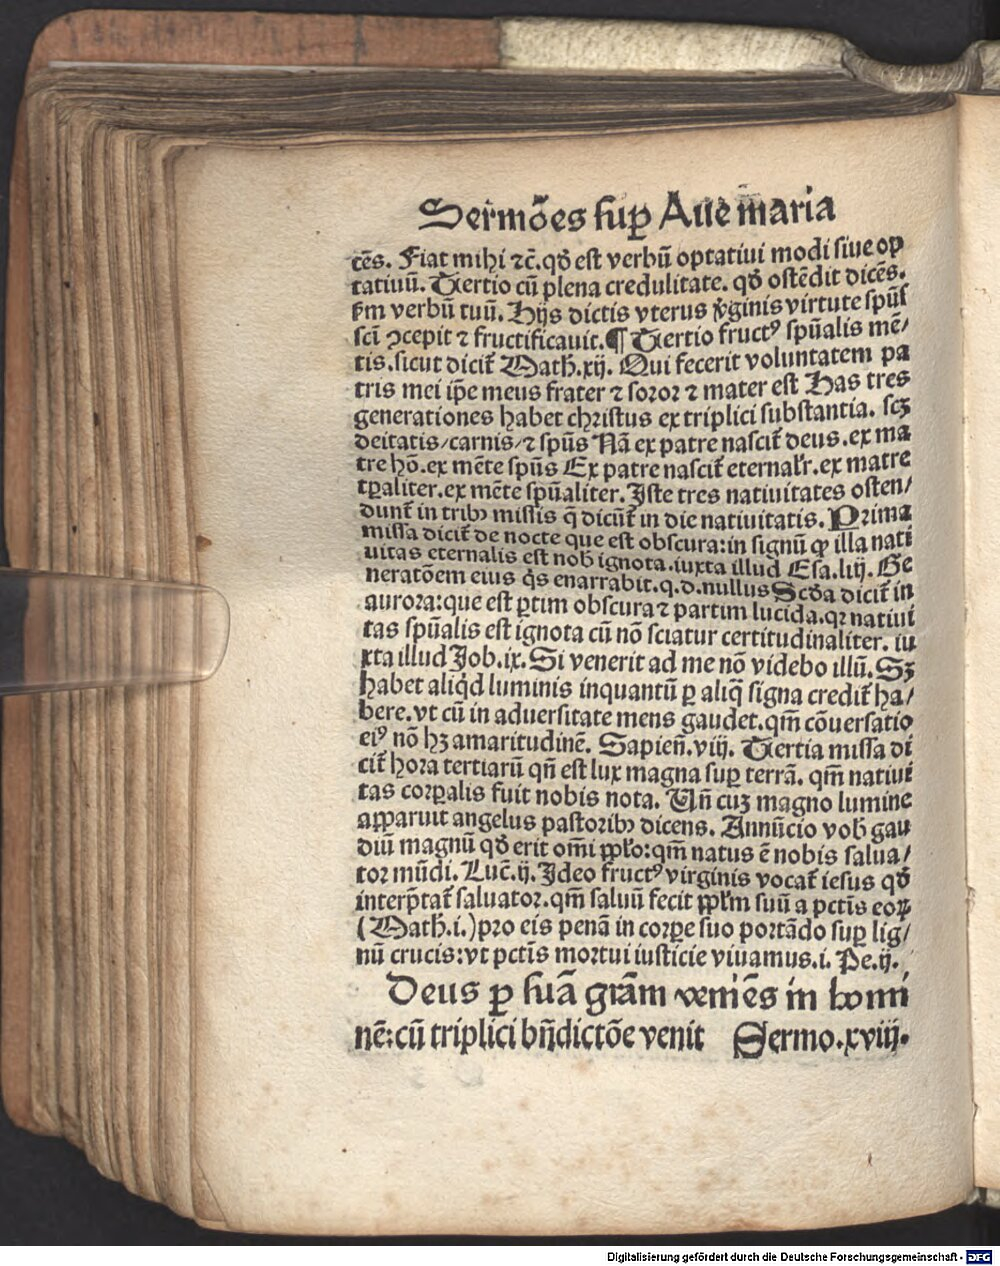 Sermões sup̱ Aue maria
cẽs. Fiat mihi ⁊c̄. qđ est verbũ optatiui modi siue op
tatiuũ. Tertio cũ plena credulitate. qđ ostẽdit dicẽs.
ẜm verbũ tuũ. Hijs dictis vterus v̾ginis virtute spũs
sci̅ ꝯcepit ⁊ fructificauit. ¶ Tertio fructꝰ spũalis mẽ/
tis. sicut dicit̃ Math̃. xij. Qui fecerit voluntatem pa
tris mei ip̃e meus frater ⁊ soror ⁊ mater est Has tres
generationes habet christus ex triplici substantia. scꝫ
deitatis/carnis/⁊ spũs Nã ex patre nascit̃ deus. ex ma
tre hõ. ex mẽte spũs Ex patre nascit̃ eternalr̃. ex matre
tꝑaliter. ex mẽte spũaliter. Iste tres natiuitates osten/
dunt̃ in tribꝰ missis q̃ dicũt̃ in die natiuitatis. Prima
missa dicit̃ de nocte que est obscura: in signũ ꝙ illa nati
uitas eternalis est nob̃ ignota. iuxta illud Esa. liij. Ge
neratõem eius q̃s enarrabit. q. d. nullus Scđa dicit̃ in
aurora: que est ꝑtim obscura ⁊ partim lucida. qꝛ natiui
tas spũalis est ignota cũ nõ sciatur certitudinaliter. iu
xta illud Job. ix. Si venerit ad me nõ videbo illũ. Sꝫ
habet aliq̃d luminis inquantũ ꝑ aliq̃ signa credit̃ ha/
bere. vt cũ in aduersitate mens gaudet. qm̃ cõuersatio
eiꝰ nõ hꝫ amaritudinẽ. Sapien̄. viij. Tertia missa di
cit̃ hora tertiarũ qn̄ est lux magna suꝑ terrã. qm̃ natiui
tas corꝑalis fuit nobis nota. Vn̄ cuꝫ magno lumine
apparuit angelus pastoribꝰ dicens. Annũcio vob̃ gau
diũ magnũ qđ erit omi̅ ppło: qm̃ natus ẽ nobis salua/
tor mũdi. Luc̃. ij. Ideo fructꝰ virginis vocat̃ iesus qđ
interp̃tat̃ saluator. qm̃ saluũ fecit ppłm suũ a pctĩs eoꝝ
(Math̃. i.) pro eis penã in corꝑe suo portãdo suꝑ lig/
nũ crucis: vt pctĩs mortui iusticie viuamus. i. Pe. ij.
Deus ꝑ suã grãm veniẽs in homi
nẽ: cũ triplici bñdictõe venit Sermo. xviij.
Digitalisierung gefördert durch die Deutsche Forschungsgemeinschaft - DFG